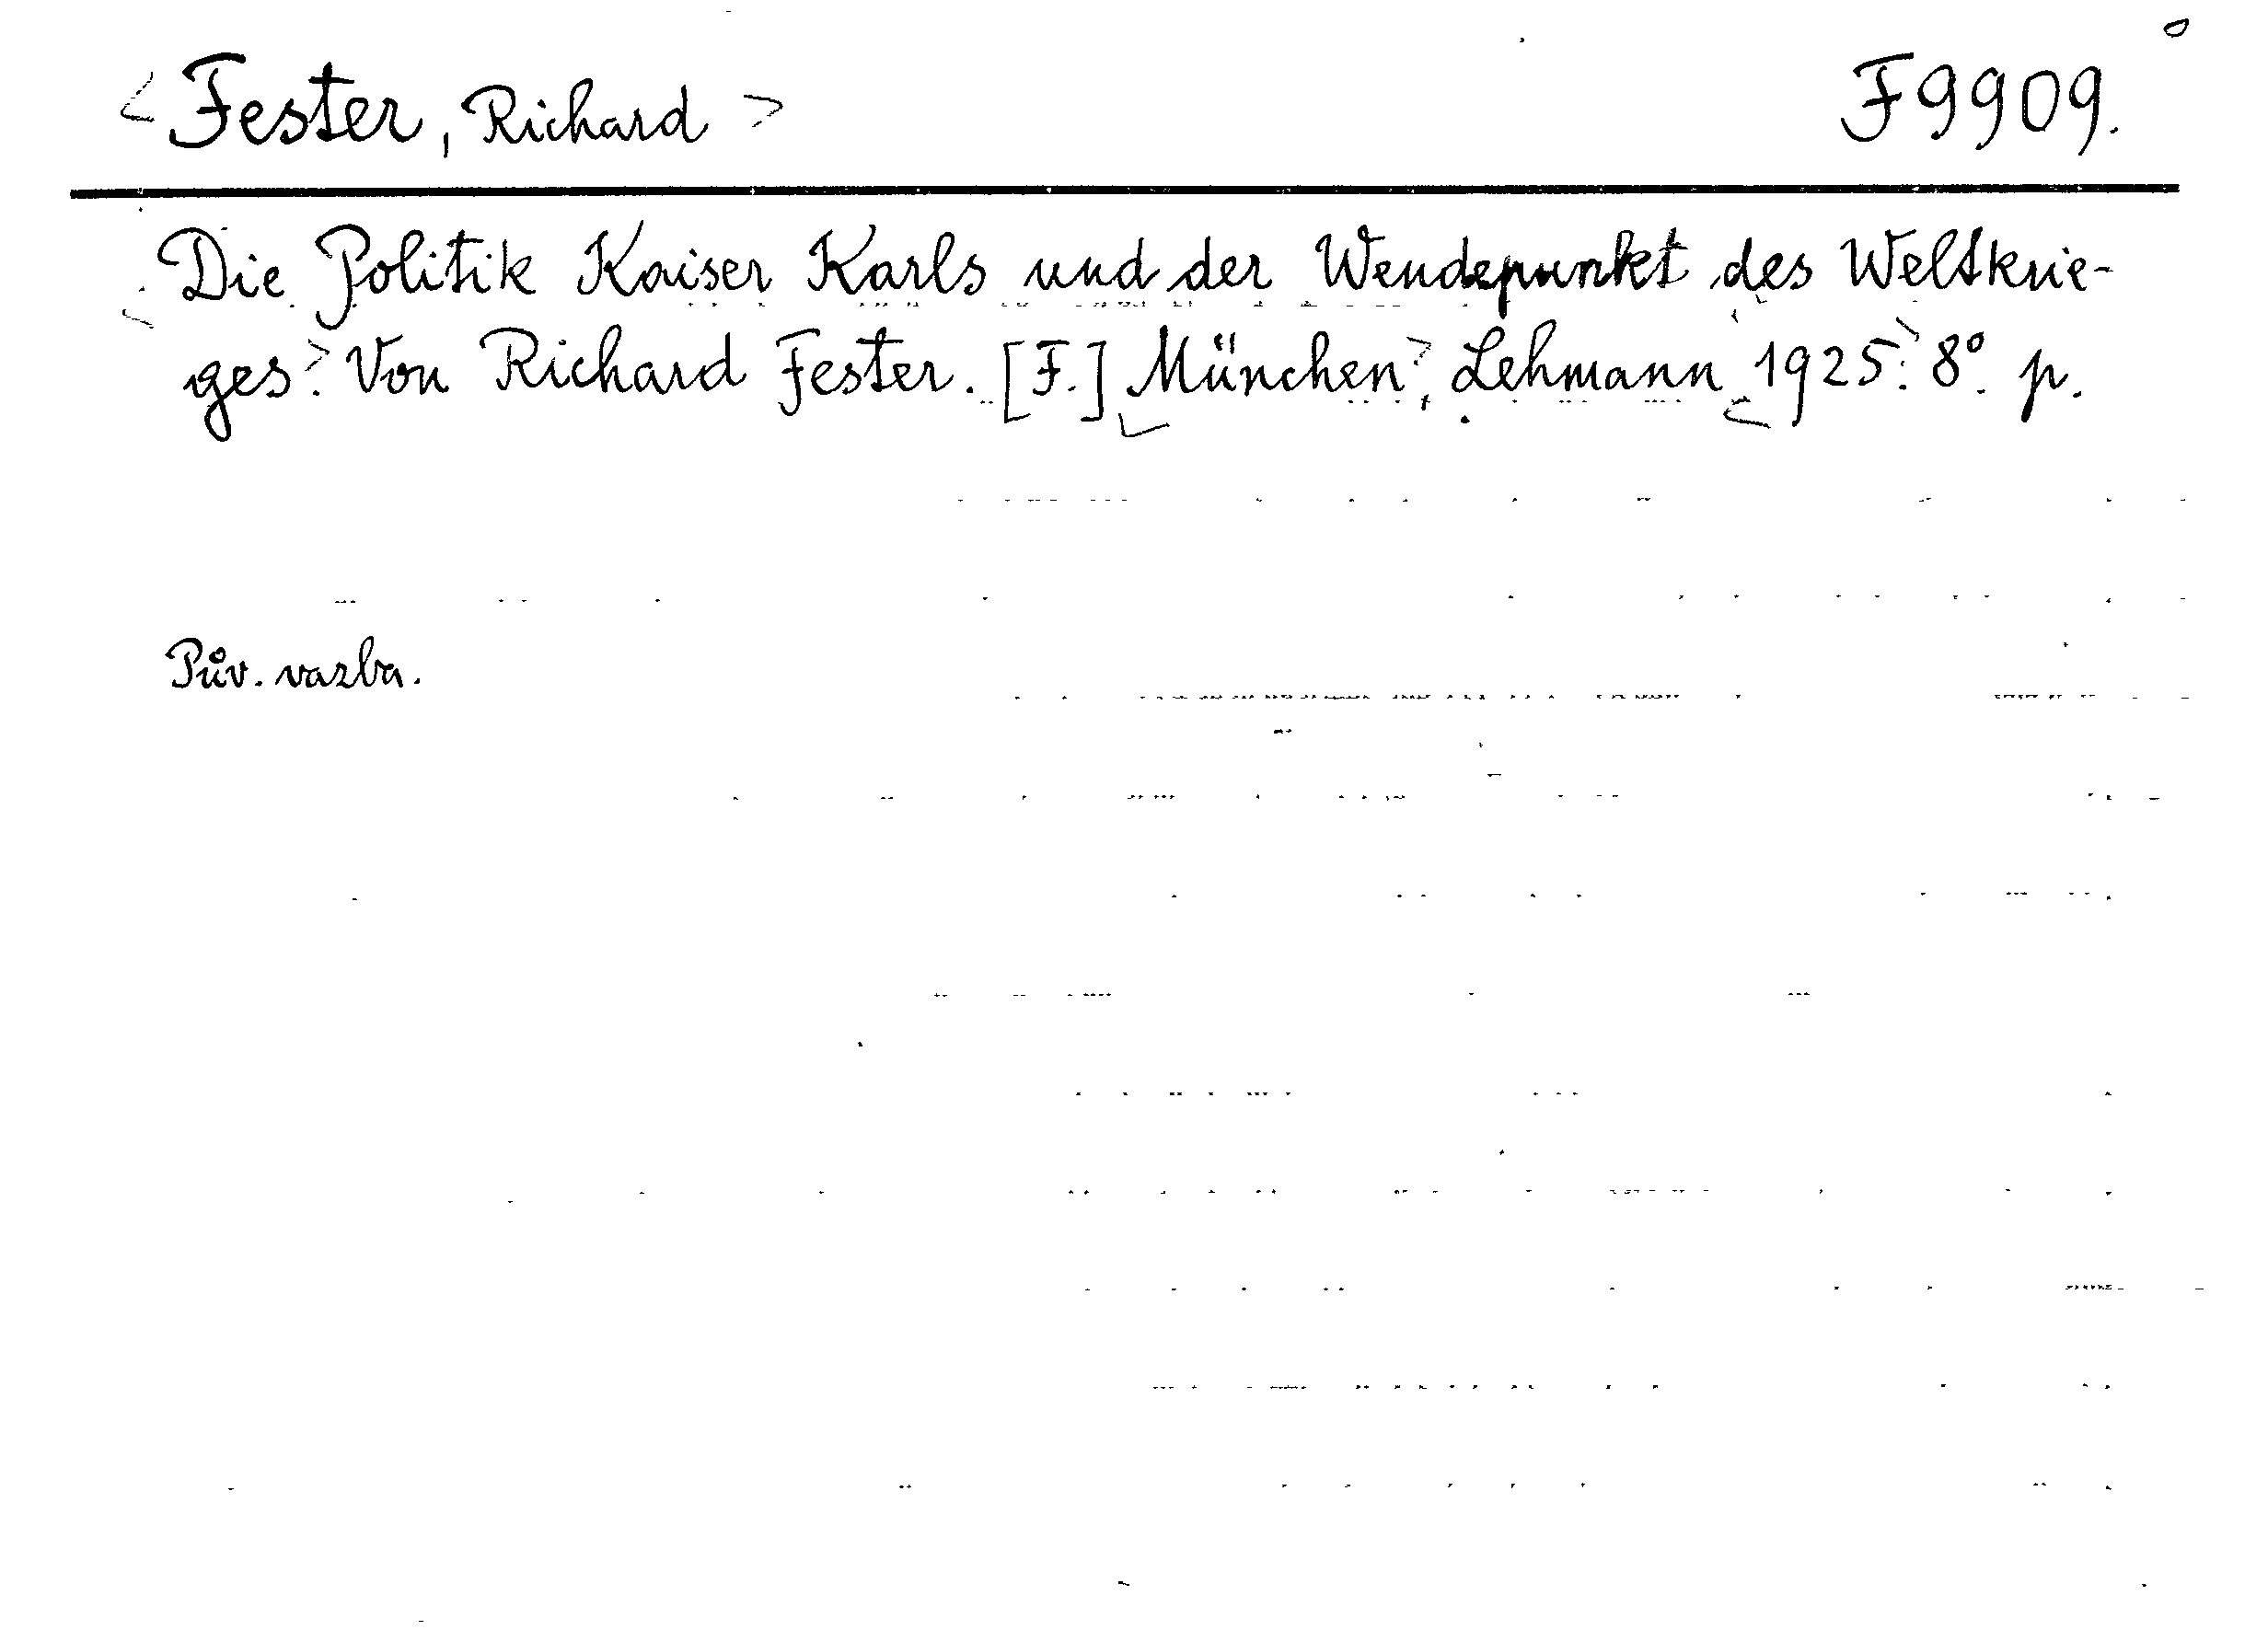 <Fester, Richard> F9909.
Die Politik Kaiser Karls und der Wendepunkt des Weltkrie-
ges. Von Richard Fester. [F.] München, Lehmann 1925. 8°. p.
Pův. vazba.